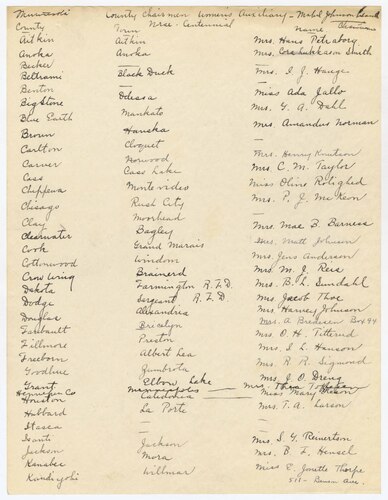 Minnesota County Chairmen Womens Auxiliary - Mabel Johnson
Norse-Centennial Chairman
County Town Name
Aitkin Aitkin Mrs. Hans Petraborg
Anoka Anoka Mrs. Smith
Becker — —
Beltrami Black Duck Mrs. I. J. Hauge
Benton — Miss Ada Jallo
Big Stone Odessa Mrs. G. A. Dahl
Blue Earth Mankato Mrs. Amandus Norman
Brown Hanska —
Carlton Cloquet Mrs. Henry Knutson
Carver Norwood Mrs. C. M. Taylor
Cass Cass Lake Miss Olive Rotighed
Chippewa Montevideo Mrs. P. J. McKeon
Chisago Rush City —
Clay Moorhead Mrs. Mae B. Barness
Clearwater Bagley Mrs. Matt Johnson
Cook Grand Marais Mrs. Jens Anderson
Cottonwood Windom Mrs. M. J. Reis
Crow Wing Brainerd Mrs. B. L. Sundahl
Dakota Farmington R.F.D. Mrs. Jacob Thoe
Dodge Sargeant R.F.D. Mrs. Harvey Johnson
Douglas Alexandria Mrs. A. Box 94
Faribault Bricelyn Mrs. O. H. Titterud
Fillmore Preston Mrs. S. L. Hanson
Freeborn Albert Lea Mrs. R. R. Sigmond
Goodhue Zumbrota Mrs. J. O. Dreng
Grant Elbow Lake Mrs. Thea
Hennepin Co Minneapolis — Miss Mary
Houston Caledonia Mrs. T. A. Larson
Hubbard La Porte —
Itasca — —
Isanti — Mrs. S. G. Reinertson
Jackson Jackson Mrs. B. F. Hensel
Kanabec Mora Miss E. Jonette Thorpe
Kandiyohi Willmar 511 - Benson Ave.